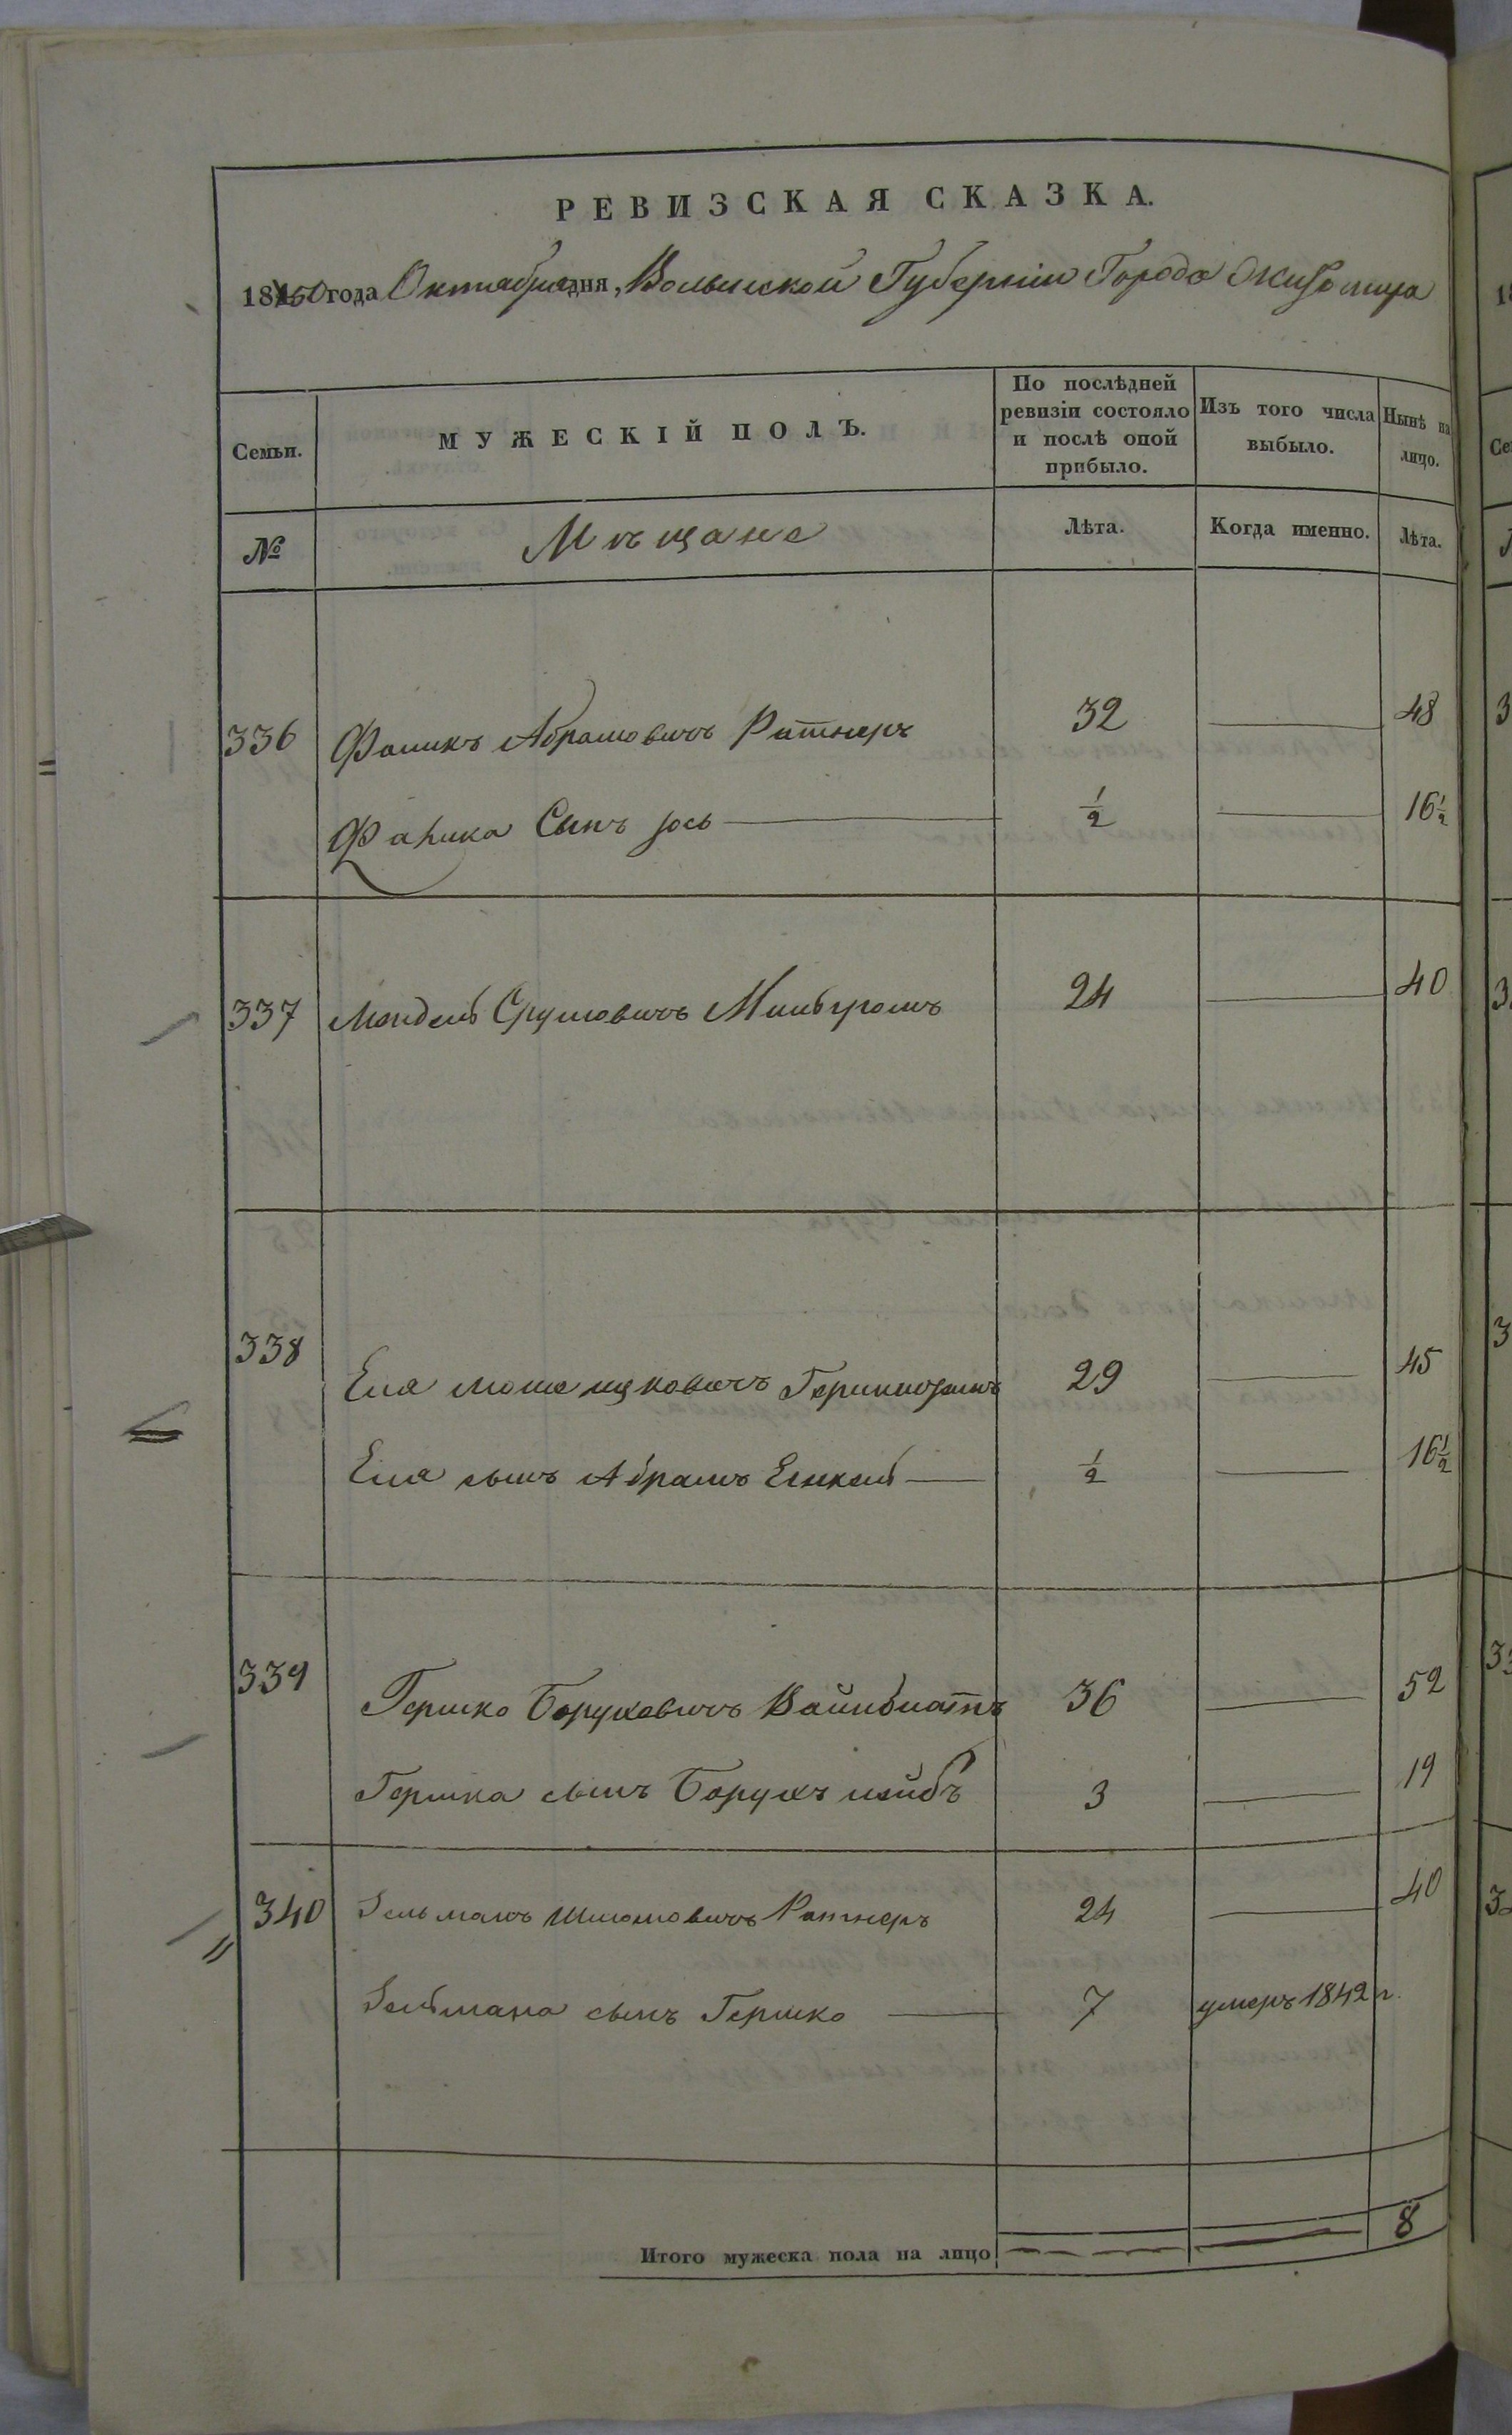 РЕВИЗСКАЯ СКАЗКА.
1850 года Октября дня, Волынской Губерніи Города Житомира
Семьи. МУЖЕСКІЙ ПОЛЪ. По послѣдней ревизіи состояло и послѣ оной прибыло. Изъ того числа выбыло. Нынѣ на лицо.
№ Мѣщане Лѣта. Когда именно. Лѣта.
336 Фаликъ Абрамовичъ Ратнеръ 32 48
Фалика Сынъ Іось ½ 16½
337 Мендель Срулевичъ Мильгромъ 24 40
338 Еля Мошко 29 45
Еля сынъ Абрамъ Енкель ½ 16½
339 Гершко Боруховичъ Вайнблатъ 36 52
Гершка сынъ Борухъ Лейбъ 3 19
340 Зельманъ Шломовичъ Ратнеръ 24 40
Зельмана сынъ Гершко 7 умеръ 1842 г.
Итого мужеска пола на лицо 8